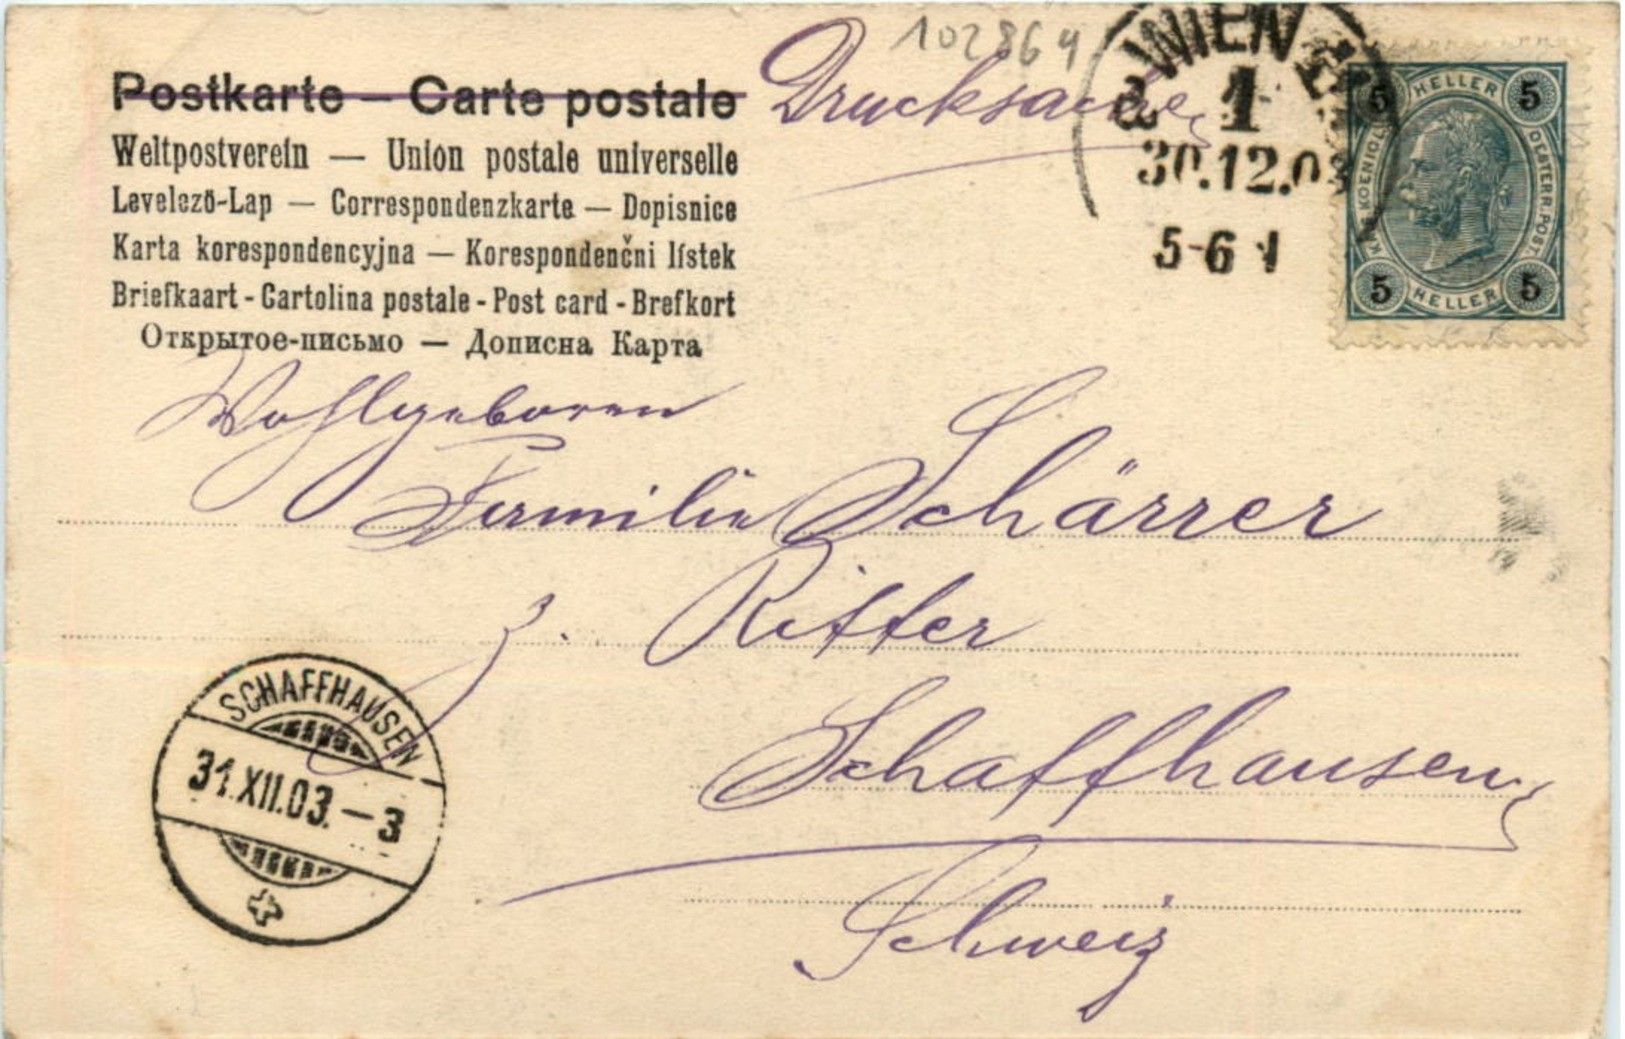 102864
Postkarte – Carte postale
Drucksache
Weltpostverein — Union postale universelle
Levelező-Lap — Correspondenzkarte — Dopisnice
Karta korespondencyjna — Korespondenčni lístek
Briefkaart - Cartolina postale - Post card - Brefkort
Открытое-письмо — Дописна Карта
WIEN
1
30.12.03
5-6
5 HELLER 5
K.K. KOENIGL. OESTERR. POST.
5 HELLER 5
Wohlgeboren
Familie Schärrer
z. Ritter
Schaffhausen
Schweiz
SCHAFFHAUSEN
31.XII.03. — 3